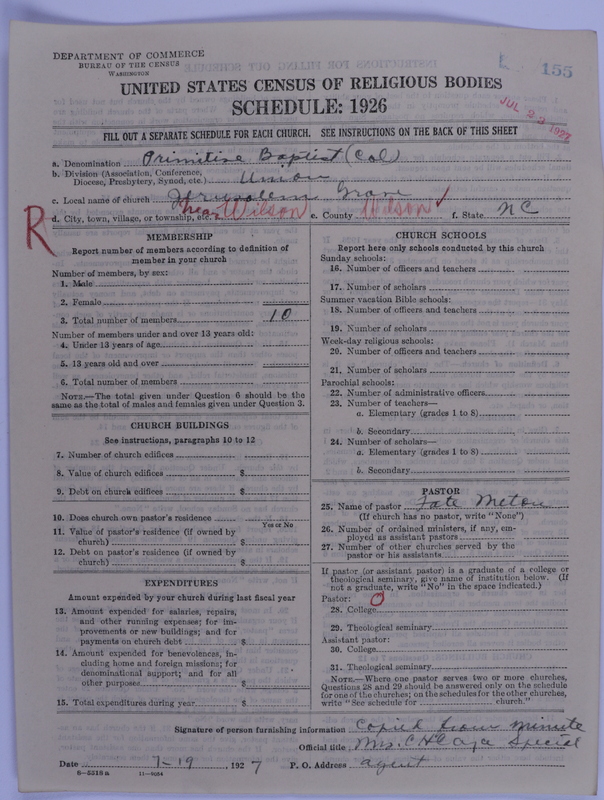 DEPARTMENT OF COMMERCE
BUREAU OF THE CENSUS
WASHINGTON
155
UNITED STATES CENSUS OF RELIGIOUS BODIES
SCHEDULE: 1926
JUL 23 1927
FILL OUT A SEPARATE SCHEDULE FOR EACH CHURCH. SEE INSTRUCTIONS ON THE BACK OF THIS SHEET
a. Denomination Primitive Baptist (Col)
b. Division (Association, Conference, Diocese, Presbytery, Synod, etc.) Union
c. Local name of church Jerusalem Grove
d. City, town, village, or township, etc. near Wilson e. County Wilson ✓ f. State NC
R
MEMBERSHIP
Report number of members according to definition of
member in your church
Number of members, by sex:
1. Male
2. Female
3. Total number of members 10
Number of members under and over 13 years old:
4. Under 13 years of age
5. 13 years old and over
6. Total number of members
NOTE.—The total given under Question 6 should be the
same as the total of males and females given under Question 3.
CHURCH BUILDINGS
See instructions, paragraphs 10 to 12
7. Number of church edifices
8. Value of church edifices $
9. Debt on church edifices $
10. Does church own pastor's residence
Yes or No
11. Value of pastor's residence (if owned by
church) $
12. Debt on pastor's residence (if owned by
church) $
EXPENDITURES
Amount expended by your church during last fiscal year
13. Amount expended for salaries, repairs,
and other running expenses; for im-
provements or new buildings; and for
payments on church debt $
14. Amount expended for benevolences, in-
cluding home and foreign missions; for
denominational support; and for all
other purposes $
15. Total expenditures during year $
CHURCH SCHOOLS
Report here only schools conducted by this church
Sunday schools:
16. Number of officers and teachers
17. Number of scholars
Summer vacation Bible schools:
18. Number of officers and teachers
19. Number of scholars
Week-day religious schools:
20. Number of officers and teachers
21. Number of scholars
Parochial schools:
22. Number of administrative officers
23. Number of teachers—
a. Elementary (grades 1 to 8)
b. Secondary
24. Number of scholars—
a. Elementary (grades 1 to 8)
b. Secondary
PASTOR
25. Name of pastor Fate
(If church has no pastor, write "None")
26. Number of ordained ministers, if any, em-
ployed as assistant pastors
27. Number of other churches served by the
pastor or his assistants
If pastor (or assistant pastor) is a graduate of a college or
theological seminary, give name of institution below. (If
not a graduate, write "No" in the space indicated.)
Pastor: O
28. College
29. Theological seminary
Assistant pastor:
30. College
31. Theological seminary
NOTE.—Where one pastor serves two or more churches,
Questions 28 and 29 should be answered only on the schedule
for one of the churches; on the schedules for the other churches,
write "See schedule for church."
Signature of person furnishing information Copied from minute
Official title Mrs. Special
Date 7-19, 1927 P. O. Address agent
8-5218a 11-9054